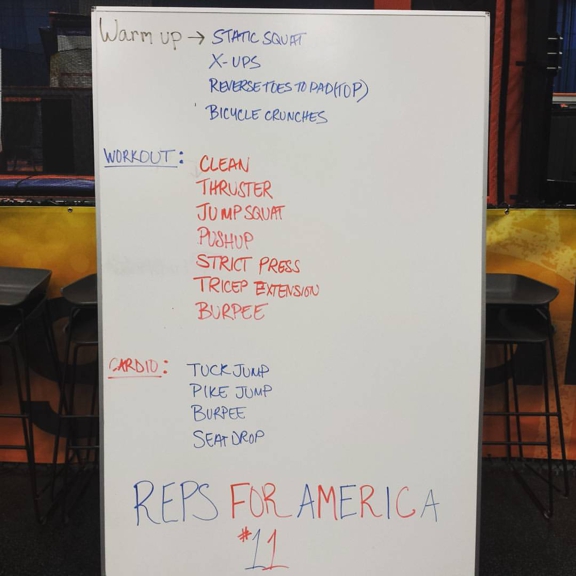 Warm up → STATIC SQUAT
X-UPS
REVERSE TOES TO PAD(TOP)
BICYCLE CRUNCHES
WORKOUT: CLEAN
THRUSTER
JUMP SQUAT
PUSHUP
STRICT PRESS
TRICEP EXTENSION
BURPEE
CARDIO: TUCK JUMP
PIKE JUMP
BURPEE
SEAT DROP
REPS FOR AMERICA
#11